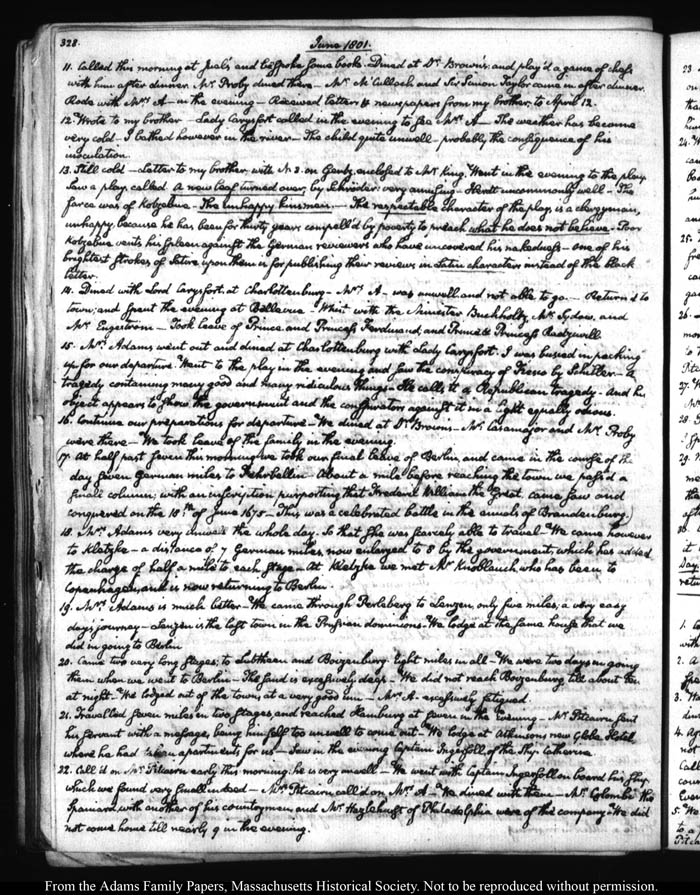 328.
June 1801.
11. Called this morning at and bespoke some books. Dined at Dr. Brown's, and play'd a game of chess
with him after dinner. Mr. Proby dined there — Mr. McCulloch and Sir Simon Taylor came in after dinner
Rode with Mrs. A — in the evening — Received letters & newspapers from my brother, to April 12.
12. Wrote to my brother — Lady Carysfort called in the evening to see Mrs. A — The weather has become
very cold. I bathed however in the river — The child quite unwell — probably the consequence of his
inoculation.
13. Still cold — Letter to my brother, with N. 3. on Gentz, enclosed to Mr. King. Went in the evening to the play.
Saw a play called A new leaf turned over, by Schröder: very amusing — Herdt uncommonly well — The
farce was of Kotzebue — The unhappy kinsmen — The respectable character of the play, is a clergyman,
unhappy, because he has been for thirty years compell'd by poverty to preach what he does not believe. Poor
Kotzebue vents his spleen against the German reviewers who have uncovered his nakedness — one of his
brightest strokes of satire upon them is for publishing their reviews in Latin characters instead of the black
letter.
14. Dined with Lord Carysfort, at Charlottenburg — Mrs. A. was unwell and not able to go — Return'd to
town; and spent the evening at Bellevue — Whist with the Minister Buchholtz, Mr. Sydow, and
Mr. Engestrom — Took leave of Prince and Princess Ferdinand, and Prince & Princess Radzivill
15. Mrs. Adams went out and dined at Charlottenburg with Lady Carysfort. I was busied in packing
up for our departure. Went to the play in the evening and saw the conspiracy of Fiesco by Schiller — A
tragedy containing many good and many ridiculous things — He calls it a Republican tragedy — And his
object appears to show the government and the conspirators against it in a light equally odious.
16. Continue our preparations for departure — We dined at Dr. Brown's — Mr. Casamajor and Mr. Proby
were there — We took leave of the family in the evening.
17. At half past seven this morning we took our final leave of Berlin, and came in the course of the
day seven German miles to Fehrbellin — About a mile before reaching the town, we pass'd a
small column, with an inscription, purporting that Frederic William the Great, came saw and
conquered on the 18th. of June 1675 — (This was a celebrated battle in the annals of Brandenburg.)
18. Mrs. Adams very unwell the whole day. So that she was scarcely able to travel. We came however
to Kletzke — a distance of 7 German miles, now enlarged to 8 by the government, which has added
the charge of half a mile to each stage — At Kletzke we met Mr. Knoblauch, who has been to
Copenhagen, and is now returning to Berlin.
19. Mrs. Adams is much better — We came through Perleberg to Lenzen, only five miles; a very easy
day's journey — Lenzen is the last town in the Prussian dominions. We lodge at the same house that we
did in going to Berlin
20. Came two very long stages; to Lübtheen and Boizenburg: eight miles in all — We were two days in going
them when we went to Berlin — The sand is excessively deep — We did not reach Boizenburg till about ten
at night. We lodged out of the town, at a very good inn — Mrs. A — excessively fatigued.
21. Travelled seven miles in two stages and reached Hamburg at seven in the evening — Mr. Pitcairn sent
his servant with a message, being himself too unwell to come out — We lodge at Atkinsons new Globe Hotel
where he had taken apartments for us — Saw in the evening Captain Ingersoll of the Ship Catherine
22. Call'd on Mr. Pitcairn early this morning: he is very unwell — We went with Captain Ingersoll on board his ship
which we found very small indeed — Mr. Pitcairn call'd on Mrs. A — We dined with them — Mr. Colombi the
Spaniard, with another of his countrymen and Mr. Hazlehurst of Philadelphia were of the company. We did
not come home till nearly 9 in the evening.
From the Adams Family Papers, Massachusetts Historical Society. Not to be reproduced without permission.